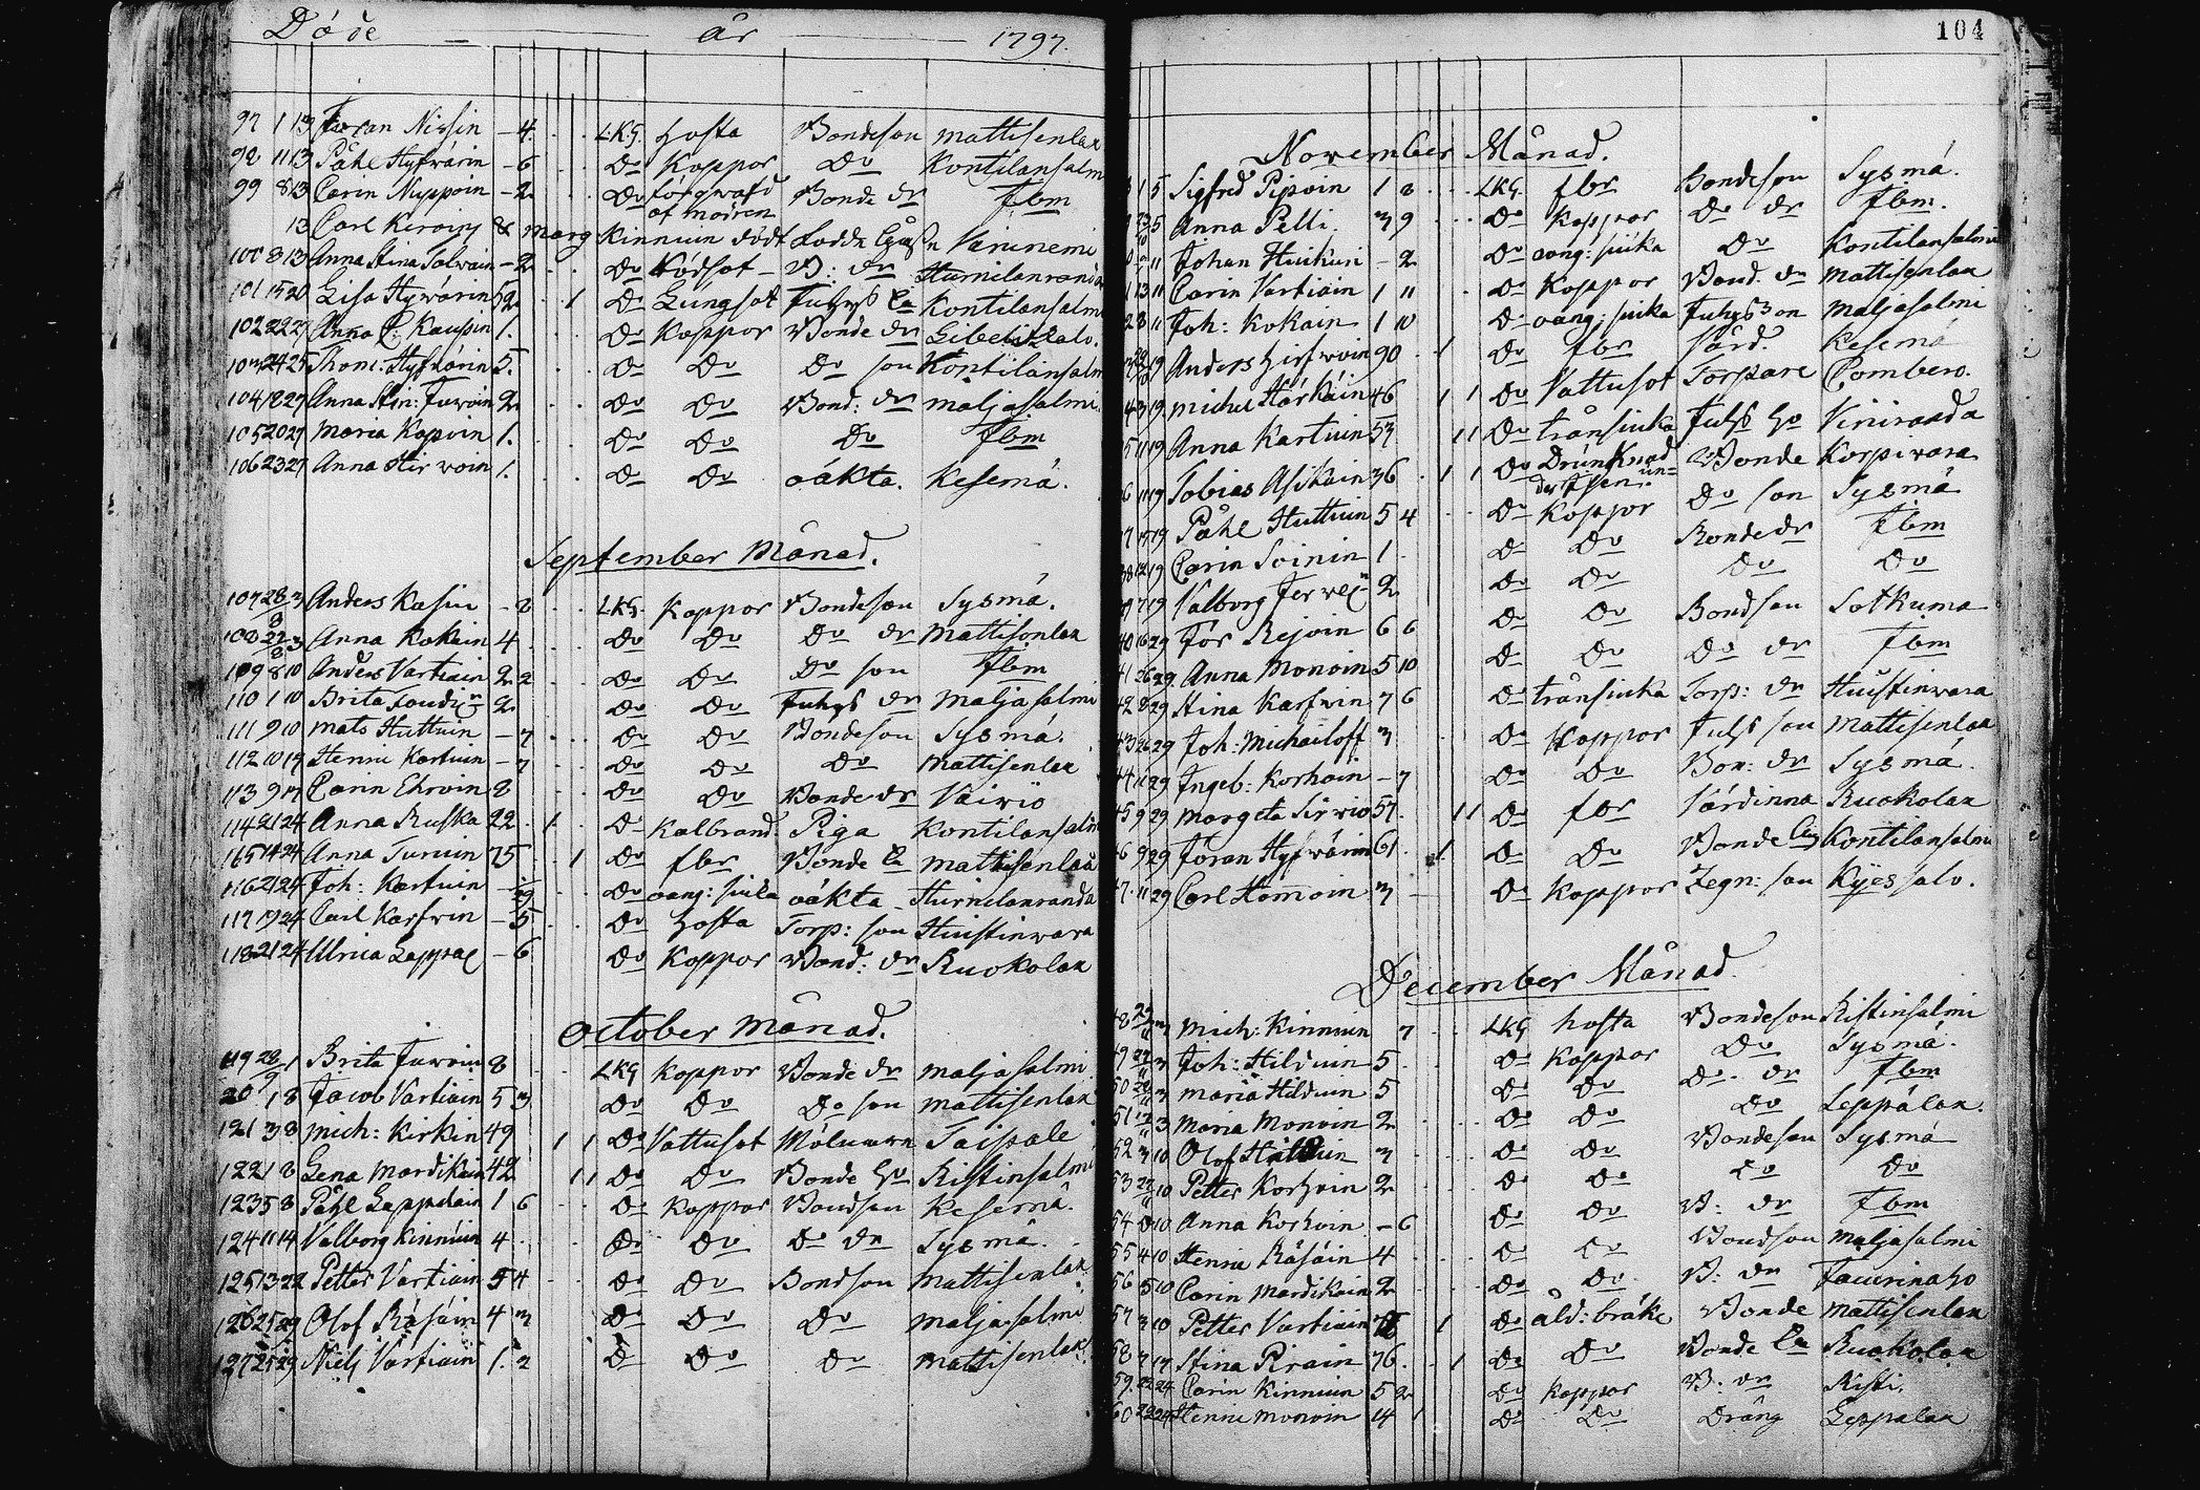 Döde år 1797.
97 1 13 Jöran Nissin - 4. LKG. hosta Bondeson Mattisenlax
98 11 13 Påhl Hyfvärin - 6 Do Koppor Do Kontilansalm
99 8 13 Carin Nuppoin - 2 Do förqwafd af modren Bonde dr Ibm
13 Carl & Marg Kinnuin död Wirinemi
100 8 13 Anna Stina Tolwain - 2 Do Rödsot - B: dr
101 15 20 Lisa Hywärin 52 1 Do Lungsot Kontilansalmi
102 22 27 Anna C: Kaupin 1. Do Koppor Bonde dr
103 24 25 Thom: Hyfvärin 5. Do Do Do son Kontilansalm
104 18 27 Anna Stin: Juvoin 2 Do Do Bond: dr Maljasalmi.
105 20 27 Maria Kopoin 1. Do Do Do Ibm
106 23 27 Anna Hirwoin 1. Do Do oäkta. Kesemä.
September Månad.
107 28/8 3 Anders Kasin - 8 LKG. Koppor Bondeson Sysmä.
108 22/8 3 Anna Kokain 4 Do Do Do dr Mattisenlax
109 8 10 Anders Vartiain 2 2 Do Do Do son Ibm
110 1 10 Brita 2 Do Do Juhgs dr Maljasalmi
111 9 10 Mats Huttuin - 7 Do Do Bondeson Sysmä.
112 10 17 Henric Kartuin - 7 Do Do Do Mattisenlax
113 9 17 Carin Ehroin 8 Do Do Bonde dr Väiviö
114 21 24 Anna Ruska 22 1 Do Kalbrand. Piga Kontilansalm
115 14 24 Anna Turuin 75 1 Do fbr Bonde Ea Mattisenlax
116 21 24 Joh: Kartuin Do oang: siuka oäkta - Hurnilanranda
117 19 24 Carl Karfvin - 5 Do hosta Torp: son Huistinwara
118 21 24 Ulrica Lappal - 6 Do Koppor Bond: dr Ruokolax
October Månad.
119 28/9 1 Brita Juvoin 8 LKG Koppor Bonde dr Maljasalmi
20 1 8 Jacob Vartiain 5 3 Do Do Do son Mattisenlax
121 3 8 Mich: Kirkin 49 1 1 Do Vattusot Taipale
122 1 8 Lena Mardikain 42 1 1 Do Do Bonde hu Ristinsalmi
123 5 8 Påhl Leppelain 1 6 Do Koppor Bondson Kesemä.
124 11 14 Valborg Kinnuin 4 Do Do Do dr Sysmä.
125 13 22 Petter Vartiain 5 4 Do Do Bondson Mattisenlax
126 25 29 Olof Räsäin 4 3 Do Do Do Maljasalmi
127 25 29 Niels Vartiain 1. 2 Do Do Do Mattisenlax
104
November Månad.
1 5 Sigfred Pipoin 1 8 LKG. fbr Bondeson Sysmä.
5 Anna Pelli. 3 9 Do Koppor Do dr Ibm.
11 Johan Huikuri - 2 Do oang: siuka Do Kontilansalmi
13 11 Carin Vartiain 1 11 Do Koppor Bond. dr Mattisenlax
8 11 Joh: Kokain 1 10 Do oang: siuka Juhgs son Maljasalmi
19 Anders Hirfwoin 90 1 Do fbr Kesemä
3 19 Michel Härkäin 46 1 1 Do Vattusot Torpare Combero.
11 19 Anna Kartuin 53 1 1 Do trånsiuka Juhs hu Viniranda
11 19 Tobias Asikain 36 1 1 Do Drunknad un= der Isen. Bonde Korpivara
17 19 Påhl Huttuin 5 4 Do Koppor Do son Sysmä
12 19 Carin Soinin 1 Do Do Bonde dr Ibm
17 19 Valborg 2 Do Do Do Do
16 29 Jör Rejoin 6 6 Do Do Bondson Sotkuma
26 29. Anna Monoin 5 10 Do Do Do dr Ibm
8 29 Stina Karfvin 7 6 Do trånsiuka Torp: dr Huistinvara
26 29 Joh: Michailoff 3 Do Koppor Juhs son Mattisenlax
11 29 Ingeb: Korhoin - 7 Do Do Bon: dr Sysmä.
9 29 Margeta Sirwio 57. 1 1 Do fbr Värdinna Ruokolax
9 29 Jöran Hyfwärin 61 1 Do Do Bonde Kontilansalmi
11 29 Carl Homoin 3 - Do Koppor Legn: son Kyessalo.
December Månad.
3 Mich: Kinnuin 7 LKG hosta Bondeson Ristinsalmi
3 Joh: Hilduin 5 Do Koppor Do Sysmä.
3 Maria Hilduin 5 Do Do Do dr Ibm
3 Maria Monoin 2 Do Do Do Leppälax.
52 3 10 Olof Hilduin 3 Do Do Bondeson Sysmä
53 10 Petter Korhoin 2 Do Do Do Do
54 8 10 Anna Korhoin - 6 Do Do B: dr Ibm
55 4 10 Henric Räsäin 4 Do Do Bondson Maljasalmi
56 5 10 Carin Mardikain 2 Do Do B: dr Jaurinaho
57 3 10 Petter Vartiain 1 Do åld: bräke Bonde Mattisenlax
58 7 17 Stina Pirain 76. 1 Do Do Bonde Ea Ruokolax
59. 22 24 Carin Kinnuin 5 2 Do Koppor B: dr Risti.
60 22 24 Henric Monoin 14 1 Do Do Dräng Leppälax